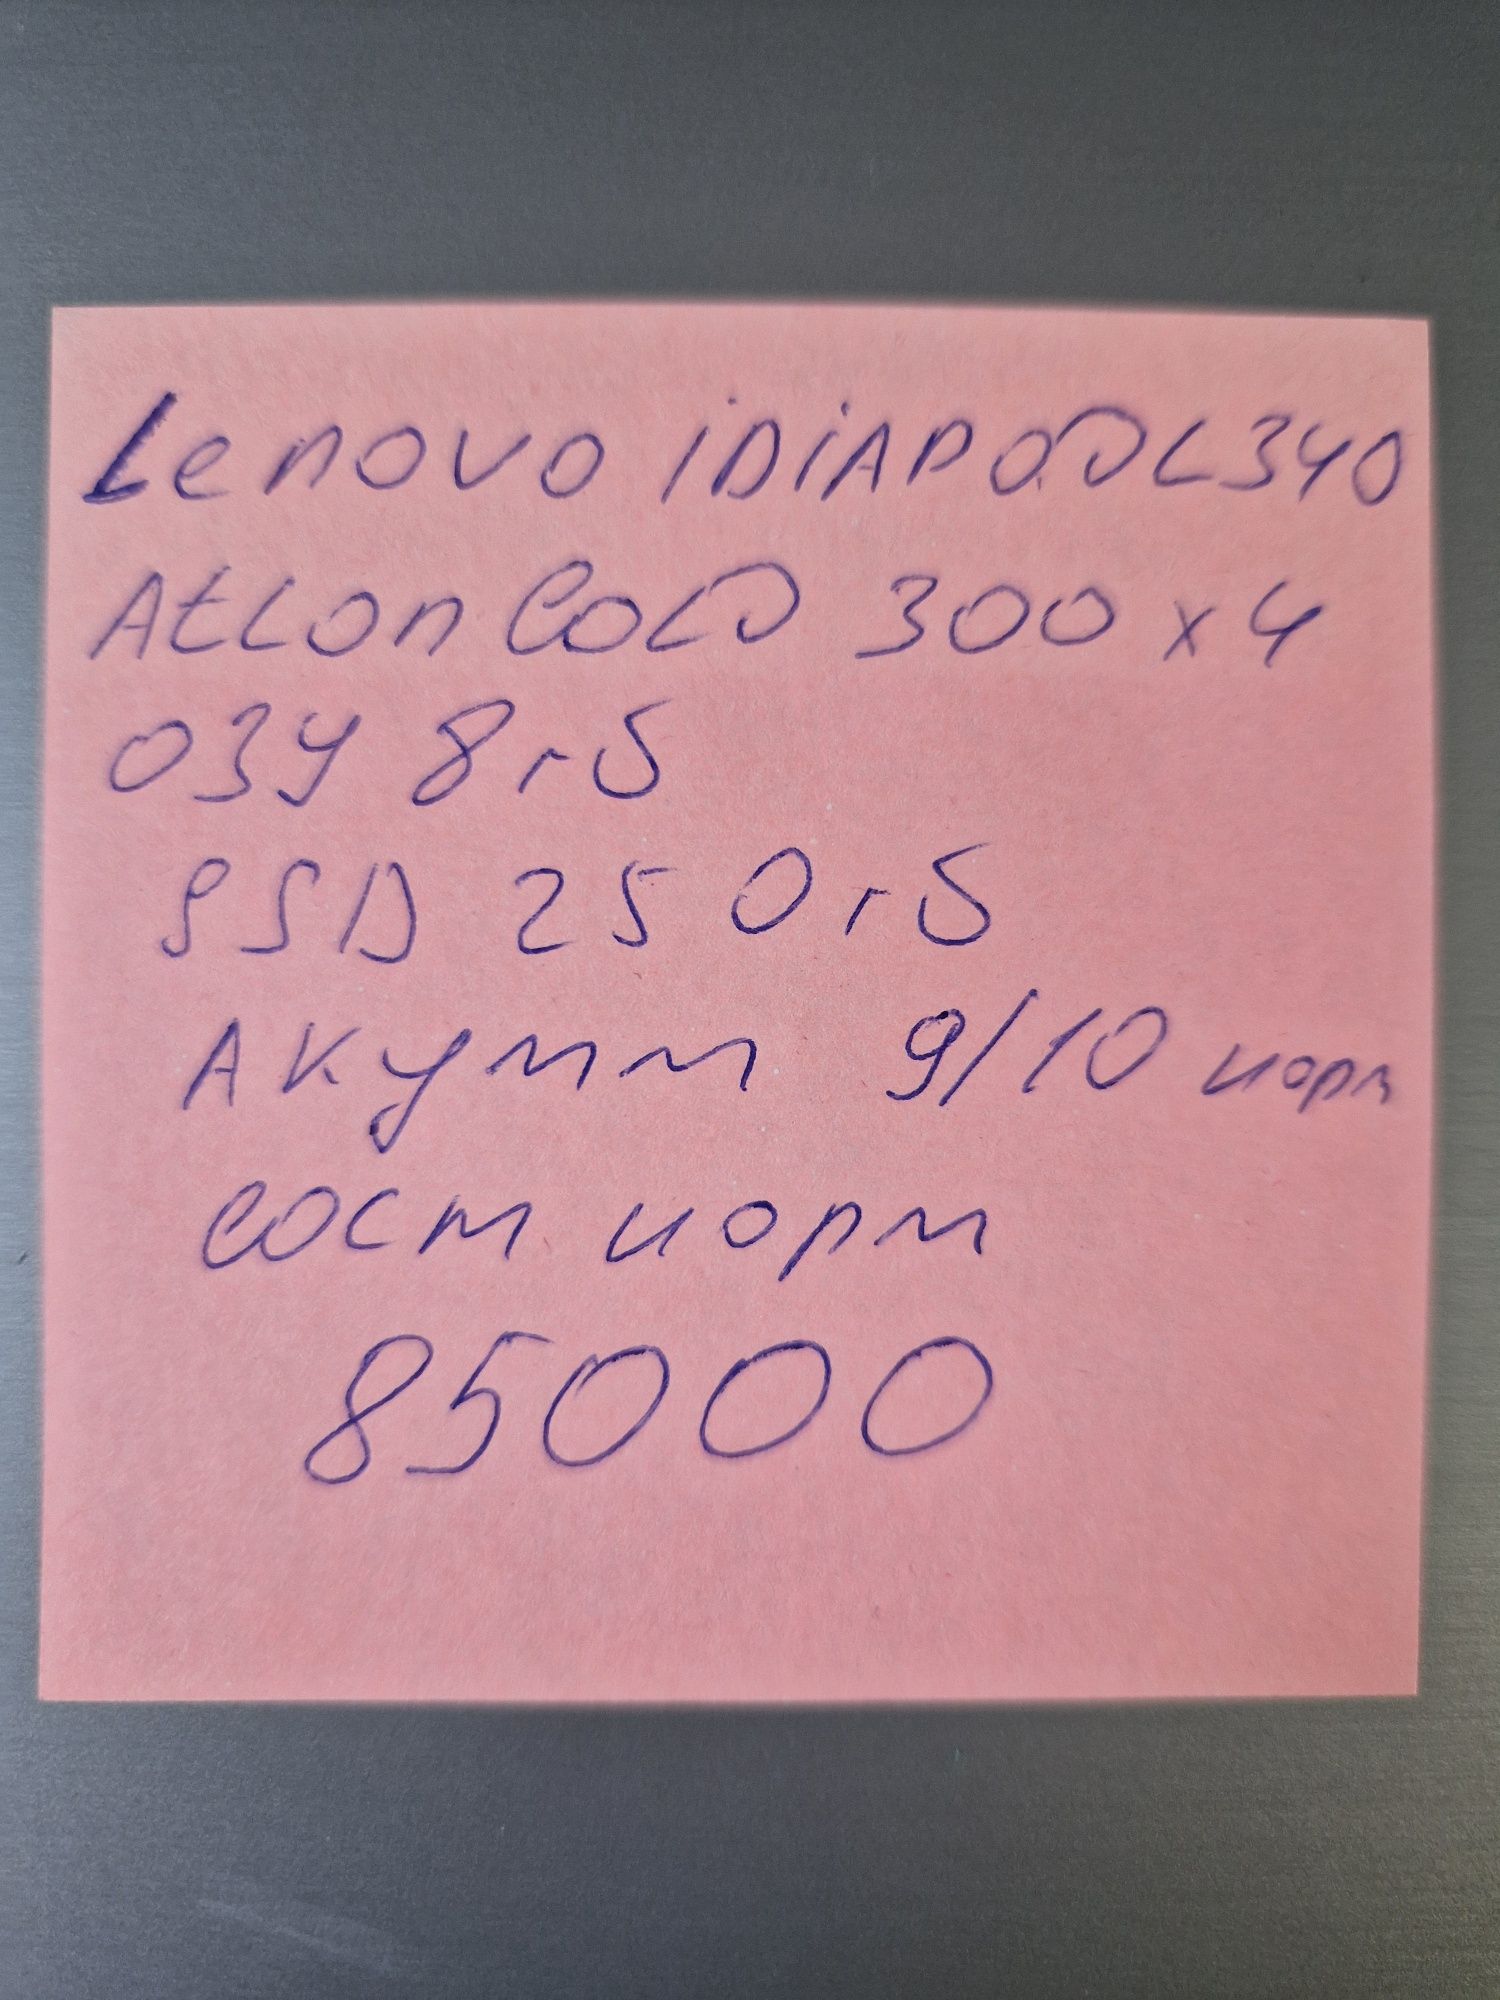 Lenovo iDiAPAD L340
Atlon GOLD 300 x 4
ОЗУ 8 гб
SSD 250 гб
Акумм 9/10 норм
сост норм
85000